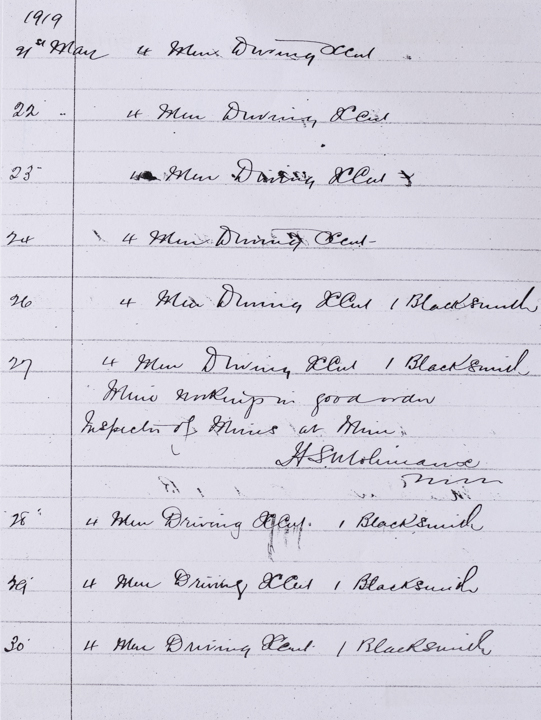 1919
21st May 4 Men Driving XCut
22 " 4 Men Driving XCut
23 4 Men Driving XCut
24 4 Men Driving XCut
26 4 Men Driving XCut 1 Blacksmith
27 4 Men Driving XCut 1 Blacksmith
Mine workings in good order
Inspector of Mines at Mine.
H S Molineaux
28 " 4 Men Driving XCut. 1 Blacksmith
29 4 Men Driving XCut 1 Blacksmith
30 4 Men Driving XCut 1 Blacksmith